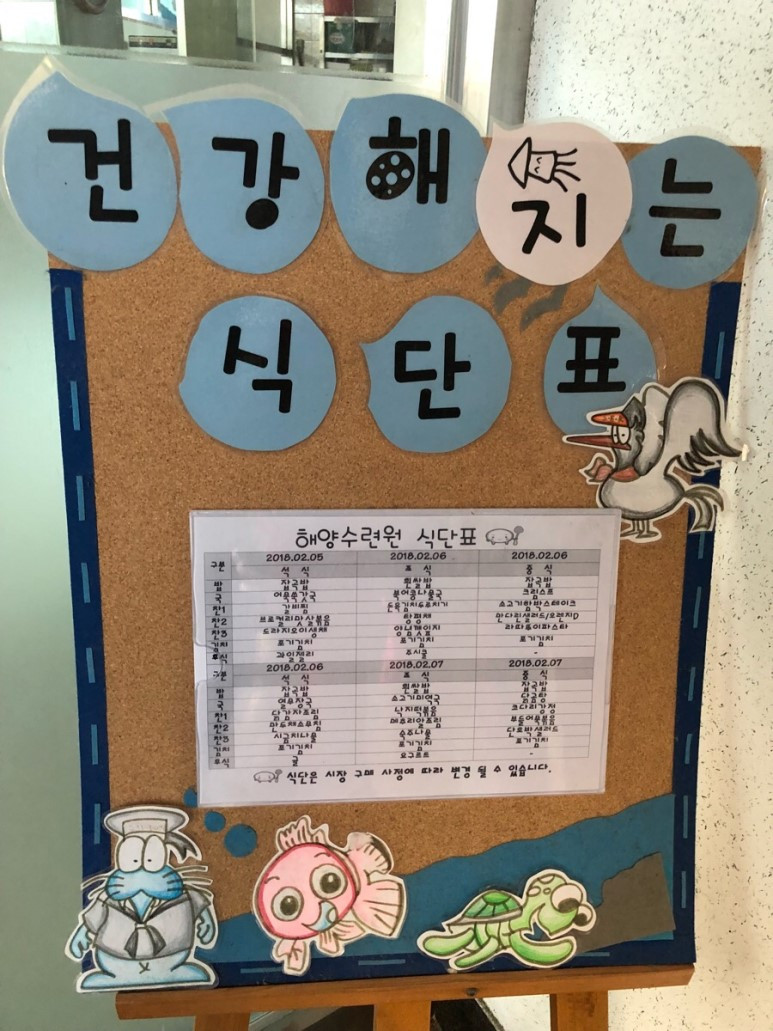 건강해지는
식단표
해양수련원 식단표
구분 2018.02.05 2018.02.06 2018.02.06
석 식 조 식 중 식
밥 잡곡밥 흰쌀밥 잡곡밥
국 어묵쑥갓국 북어콩나물국 크림스프
찬1 갈비찜 돈육김치두루치기 소고기함박스테이크
찬2 브로컬리맛살볶음 탕평채 만다린샐러드/오렌지D
찬3 도라지오이생채 라따뚜이파스타
김치 포기김치 포기김치 포기김치
후식 과일젤리 주시쿨 -
구분 2018.02.06 2018.02.07 2018.02.07
석 식 조 식 중 식
밥 잡곡밥 흰쌀밥 잡곡밥
국 얼갈장국 소고기미역국 닭곰탕
찬1 닭감자조림 낙지떡볶음 코다리강정
찬2 만두채소무침 메추리알조림 부들어묵볶음
찬3 시금치나물 숙주나물 단호박샐러드
김치 포기김치 포기김치 포기김치
후식 귤 요구르트 -
식단은 시장 구매 사정에 따라 변경 될 수 있습니다.